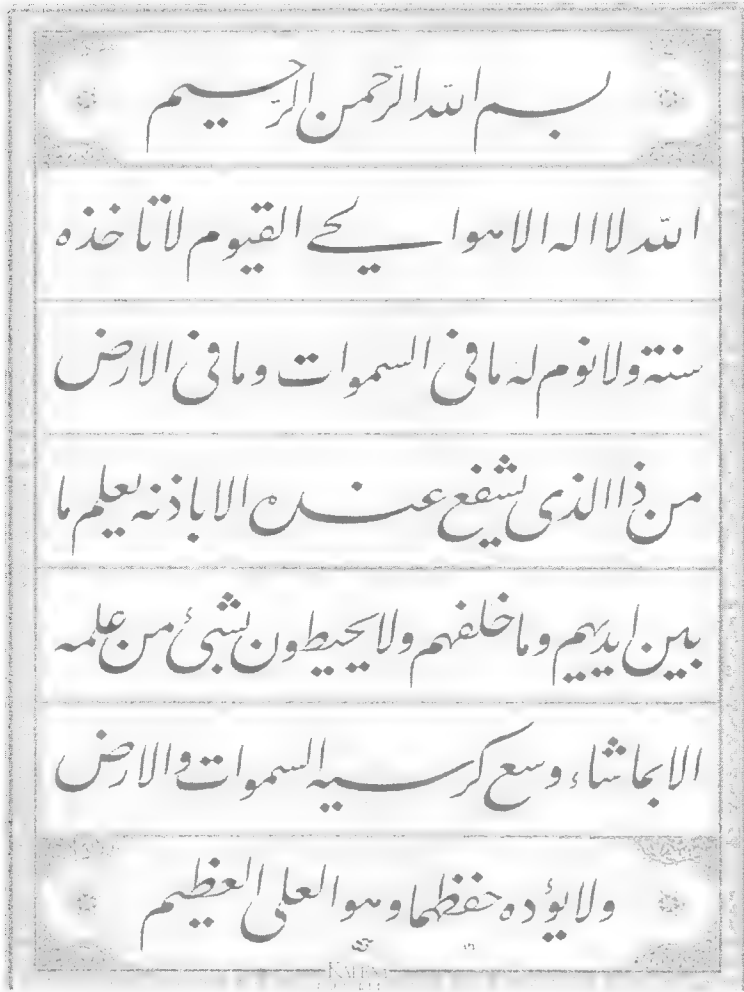 بسم الله الرحمن الرحيم
الله لا اله الا هو الحي القيوم لا تاخذه
سنة ولا نوم له ما في السموات وما في الارض
من ذا الذي يشفع عنده الا باذنه يعلم ما
بين ايديهم وما خلفهم ولا يحيطون بشئ من علمه
الا بما شاء وسع كرسيه السموات والارض
ولا يؤده حفظهما وهو العلي العظيم
KALEM